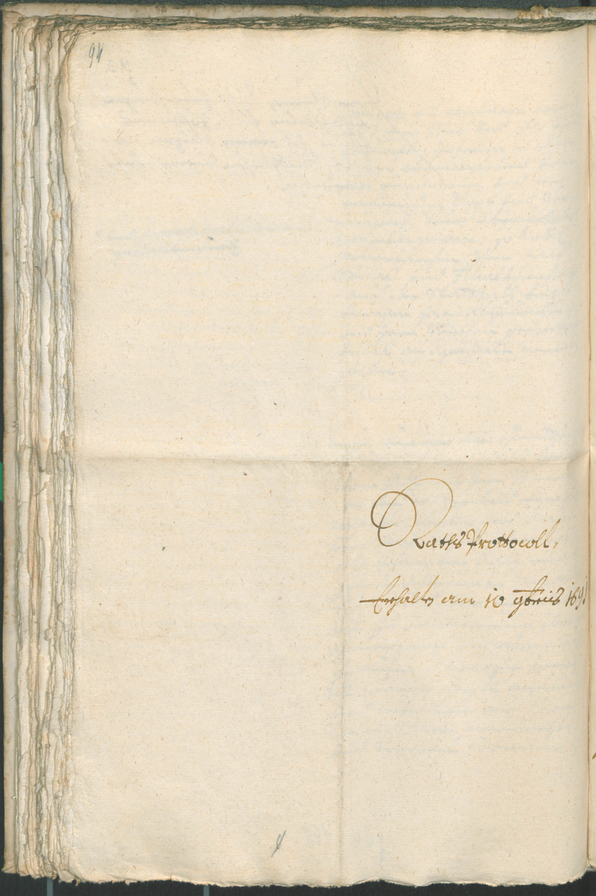 94
Raths Prottocoll,
Erhalten am 10 9bris 169